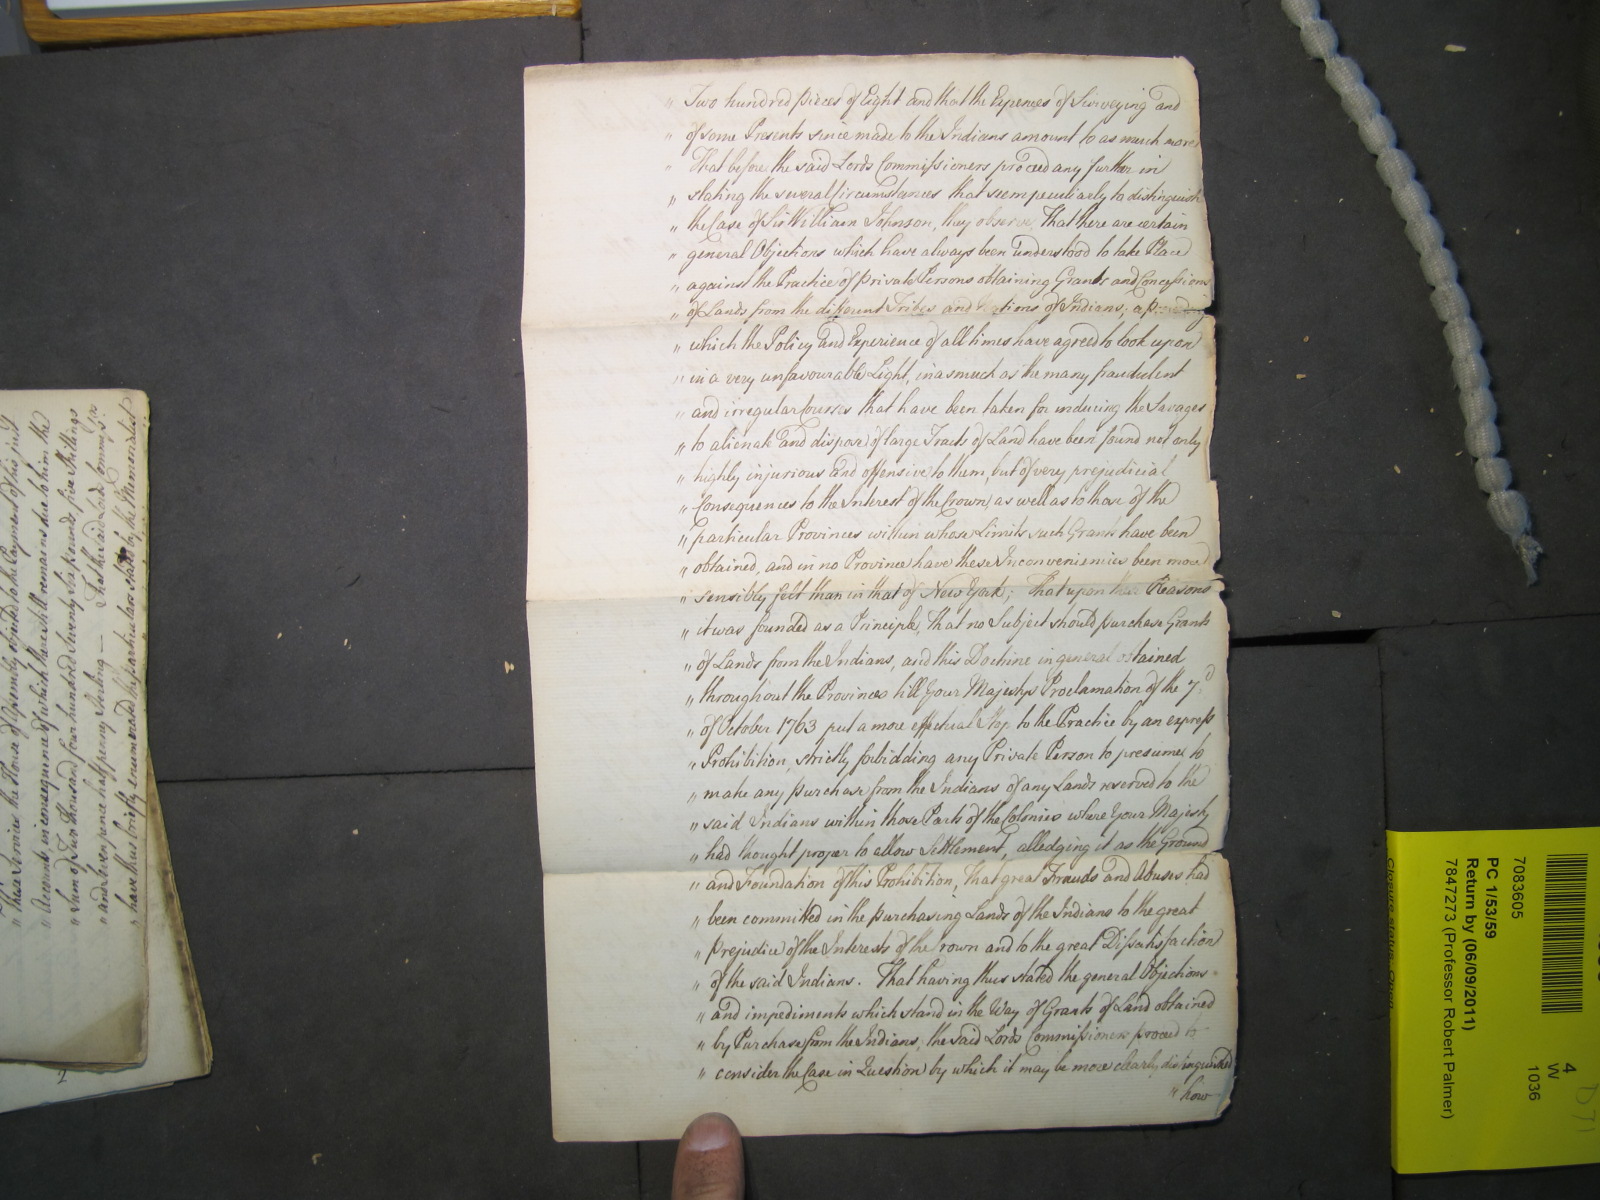 " Two hundred pieces of Eight and that the Expences of Surveying and
" of some Presents since made to the Indians amount to as much more
" That before the said Lords Commissioners proceed any further in
" stating the several Circumstances that seem peculiarly to distinguish
" the Case of Sir William Johnson, they observe, That there are certain
" general Objections which have always been understood to take Place
" against the Practice of private Persons obtaining Grants and Concessions
" of Lands from the different Tribes and Nations of Indians; a proceeding
" which the Policy and Experience of all times have agreed to look upon
" in a very unfavourable Light, in as much as the many fraudulent
" and irregular Courses that have been taken for inducing the Savages
" to alienate and dispose of large Tracts of Land have been found not only
" highly injurious and offensive to them, but of very prejudicial
" Consequences to the Interest of the Crown, as well as to those of the
" particular Provinces within whose Limits such Grants have been
" obtained, and in no Province have these Inconveniencies been more
" sensibly felt than in that of New York; That upon these Reasons
" it was founded as a Principle, That no Subject should purchase Grants
" of Lands from the Indians, and this Doctrine in general obtained
" throughout the Provinces till Your Majestys Proclamation of the 7.
" of October 1763 put a more effectual Stop to the Practice by an express
" Prohibition, strictly forbidding any Private Person to presume to
" make any purchase from the Indians of any Lands reserved to the
" said Indians within those Parts of the Colonies where Your Majesty
" had thought proper to allow Settlement, alledging it as the Ground
" and Foundation of this Prohibition, That great Frauds and Abuses had
" been committed in the purchasing Lands of the Indians to the great
" prejudice of the Interests of the Crown and to the great Dissatisfaction
" of the said Indians. That having thus stated the general Objections
" and impediments which stand in the Way of Grants of Land obtained
" by Purchase from the Indians, the said Lords Commissioners proceed to
" consider the Case in Question by which it may be more clearly distinguished
" how
" these Services the House of Assembly objected to the Payment of his just
" Accounts, in consequence of which there still remains due to him the
" Sum of Two thousand four hundred Seventy six pounds, five Shillings
" and eleven pence half penny Sterling — That the said Lords Commrs.
" have thus briefly enumerated the particulars stated by the Memorialist
2
7083605
PC 1/53/59
Return by (06/09/2011)
7847273 (Professor Robert Palmer)
Closure status: Open
4
W
1036